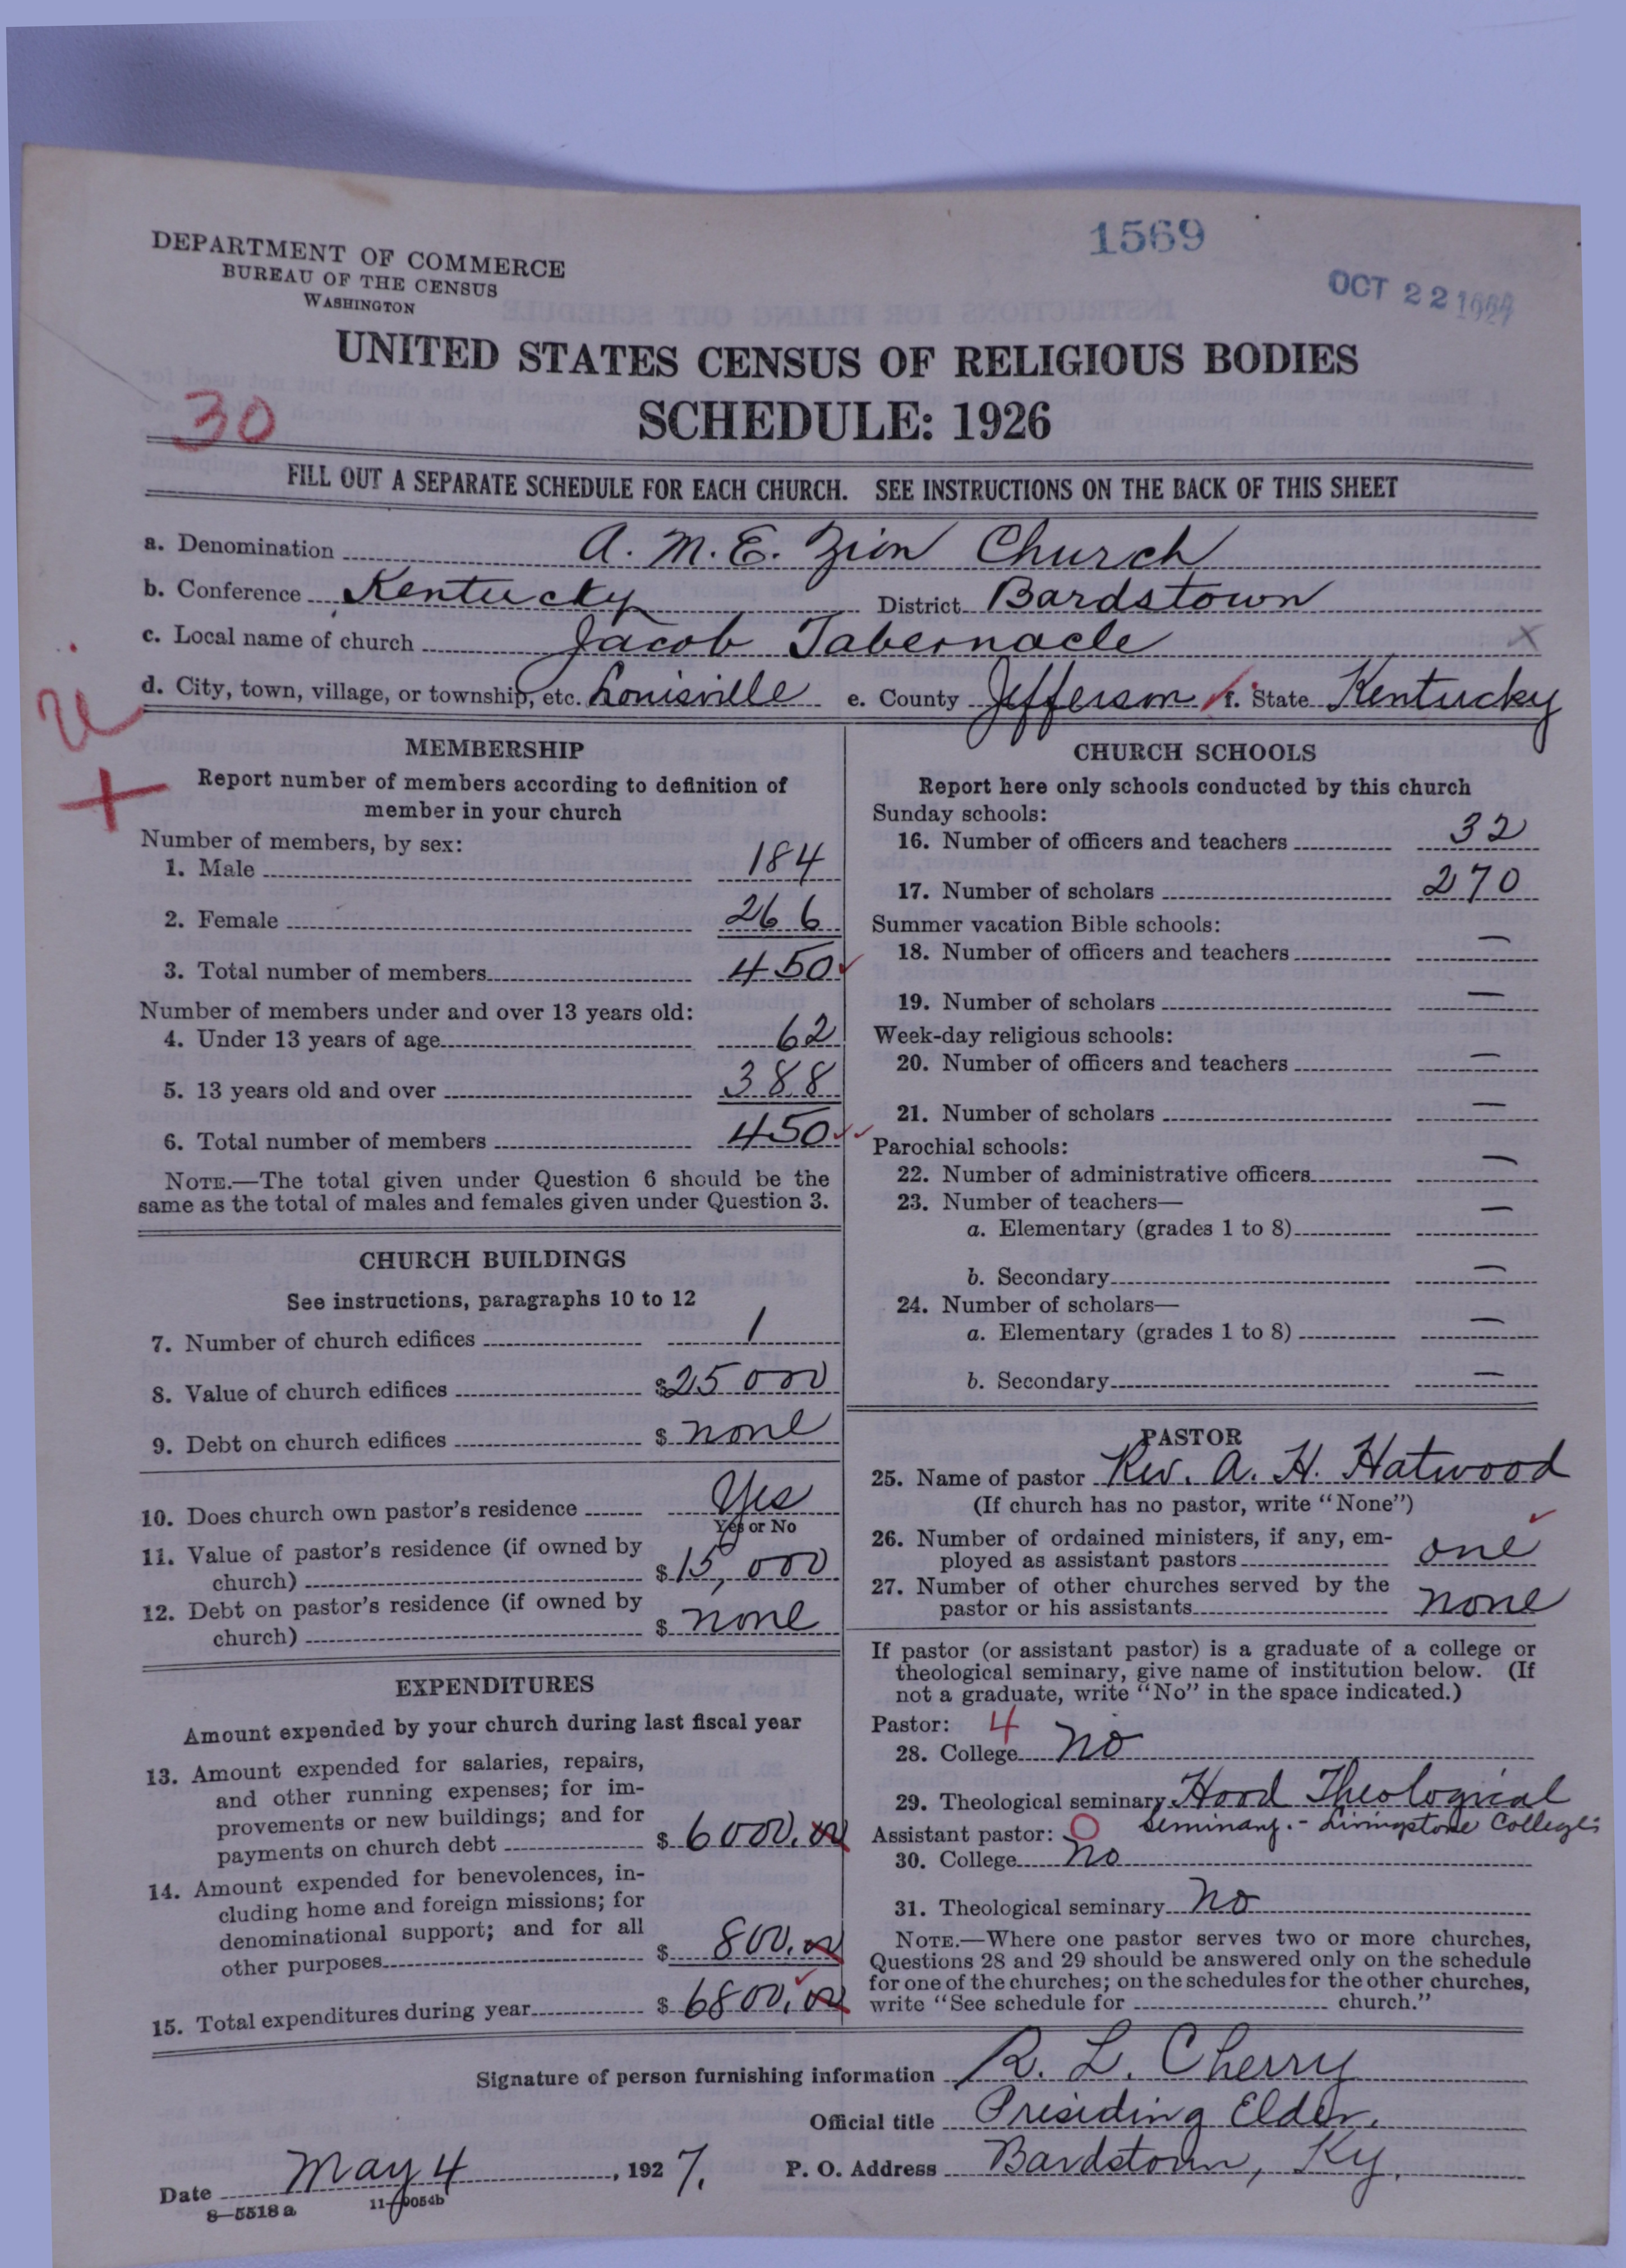 1569
OCT 22 1927
DEPARTMENT OF COMMERCE
BUREAU OF THE CENSUS
WASHINGTON
UNITED STATES CENSUS OF RELIGIOUS BODIES
SCHEDULE: 1926
30
FILL OUT A SEPARATE SCHEDULE FOR EACH CHURCH. SEE INSTRUCTIONS ON THE BACK OF THIS SHEET
a. Denomination A. M. E. Zion Church
b. Conference Kentucky District Bardstown
c. Local name of church Jacob Tabernacle
d. City, town, village, or township, etc. Louisville e. County Jefferson f. State Kentucky
MEMBERSHIP
Report number of members according to definition of
member in your church
Number of members, by sex:
1. Male 184
2. Female 266
3. Total number of members 450
Number of members under and over 13 years old:
4. Under 13 years of age 62
5. 13 years old and over 388
6. Total number of members 450
NOTE.—The total given under Question 6 should be the
same as the total of males and females given under Question 3.
CHURCH BUILDINGS
See instructions, paragraphs 10 to 12
7. Number of church edifices 1
8. Value of church edifices $25000
9. Debt on church edifices $ none
10. Does church own pastor's residence Yes
Yes or No
11. Value of pastor's residence (if owned by
church) $15,000
12. Debt on pastor's residence (if owned by
church) $ none
EXPENDITURES
Amount expended by your church during last fiscal year
13. Amount expended for salaries, repairs,
and other running expenses; for im-
provements or new buildings; and for
payments on church debt $ 6000.00
14. Amount expended for benevolences, in-
cluding home and foreign missions; for
denominational support; and for all
other purposes $ 800.00
15. Total expenditures during year $ 6800.00
CHURCH SCHOOLS
Report here only schools conducted by this church
Sunday schools:
16. Number of officers and teachers 32
17. Number of scholars 270
Summer vacation Bible schools:
18. Number of officers and teachers —
19. Number of scholars —
Week-day religious schools:
20. Number of officers and teachers —
21. Number of scholars —
Parochial schools:
22. Number of administrative officers —
23. Number of teachers— —
a. Elementary (grades 1 to 8)
b. Secondary —
24. Number of scholars—
a. Elementary (grades 1 to 8) —
b. Secondary —
PASTOR
25. Name of pastor Rev. A. H. Hatwood
(If church has no pastor, write "None")
26. Number of ordained ministers, if any, em-
ployed as assistant pastors one
27. Number of other churches served by the
pastor or his assistants none
If pastor (or assistant pastor) is a graduate of a college or
theological seminary, give name of institution below. (If
not a graduate, write "No" in the space indicated.)
Pastor: 4
28. College No
29. Theological seminary Hood Theological
Seminary. - Livingstone College:
Assistant pastor: O
30. College No
31. Theological seminary No
NOTE.—Where one pastor serves two or more churches,
Questions 28 and 29 should be answered only on the schedule
for one of the churches; on the schedules for the other churches,
write "See schedule for church."
Signature of person furnishing information R. L. Cherry
Official title Presiding Elder.
Date May 4, 1927. P. O. Address Bardstown, Ky.
8—5518 a 11—9054b